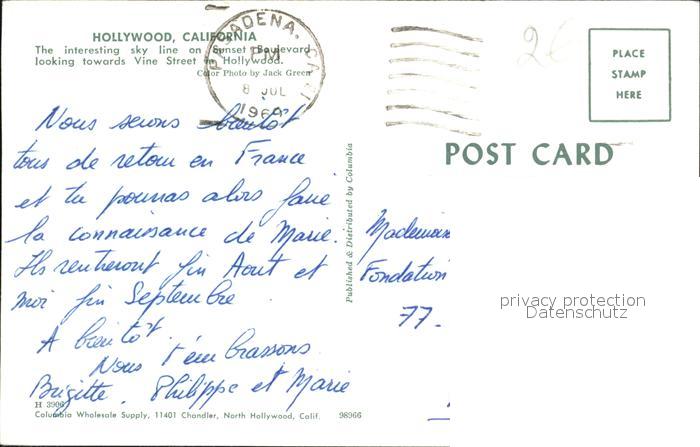 HOLLYWOOD, CALIFORNIA
The interesting sky line on Sunset Boulevard
looking towards Vine Street in Hollywood.
Color Photo by Jack Green
PASADENA, CALIF
PM
8 JUL
1969
PLACE
STAMP
HERE
POST CARD
Nous serons bientôt
tous de retour en France
et tu pourras alors faire
la connaissance de Marie.
Ils rentreront fin Aout et
moi fin Septembre
A bientôt.
Nous t'embrassons
Brigitte. Philippe et Marie
Published & Distributed by Columbia
Fondation
77.
privacy protection
Datenschutz
H 3906
Columbia Wholesale Supply, 11401 Chandler, North Hollywood, Calif. 98966